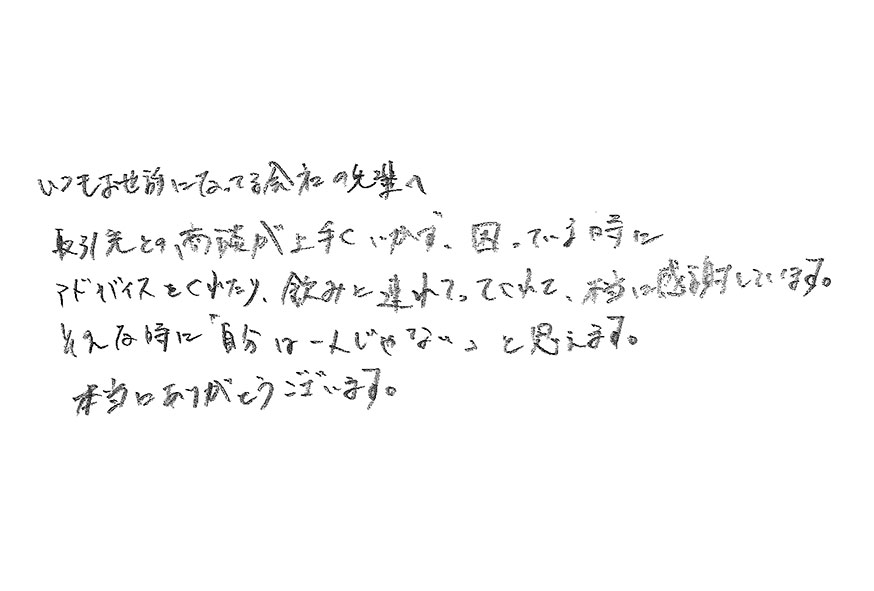 いつもお世話になってる会社の先輩へ
取引先との商談が上手くいかず、困っている時に
アドバイスをくれたり、飲みに連れてってくれて、本当に感謝しています。
そんな時に「自分は一人じゃない」と思えます。
本当にありがとうございます。